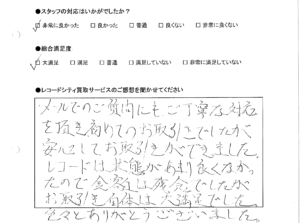 ●スタッフの対応はいかがでしたか？
☑非常に良かった □良かった □普通 □良くない □非常に良くない
●総合満足度
☑大満足 □満足 □普通 □満足していない □非常に満足していない
●レコードシティ買取サービスのご感想を聞かせてください
メールでのご質問にも、ご丁寧な対応
を頂き初めてのお取引きでしたが、
安心してお取引きができました。
レコードは状態があまり良くなかっ
たので金額は残念でしたが
お取引き自体は大満足でした。
色々とありがとうございました。